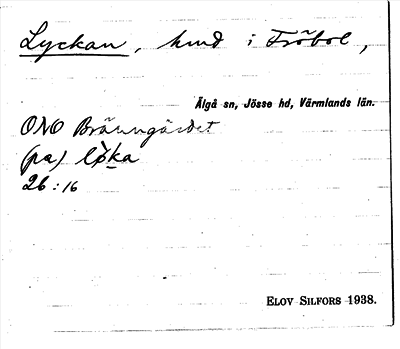 Lyckan, hmd i Fröbol,
Älgå sn, Jösse hd, Värmlands län.
ONO Bränngärdet
(pa) lø̀ka
26:16
ELOV SILFORS 1938.